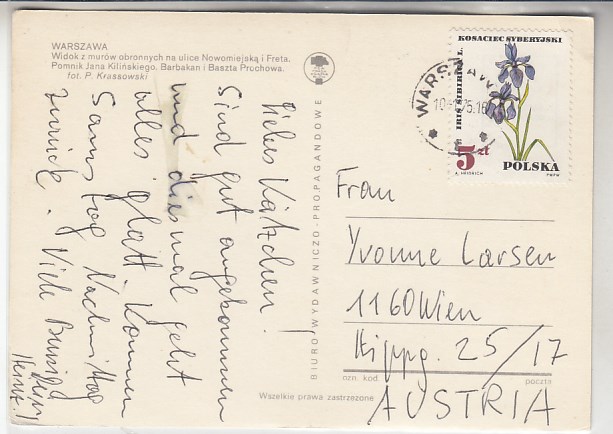 WARSZAWA
Widok z murów obronnych na ulice Nowomiejską i Freta.
Pomnik Jana Kilińskiego. Barbakan i Baszta Prochowa.
fot. P. Krassowski
Liebes Kätzchen!
Sind gut angekommen
und diesmal geht
alles glatt. Kommen
Samstag Nachmittag
zurück. Viele Bussi
Dein
BIURO WYDAWNICZO-PROPAGANDOWE
KOSACIEC SYBERYJSKI
IRIS SIBIRICA L.
5 zł
POLSKA
A. HEIDRICH
PWPW
WARSZAWA
Frau
Yvonne Larsen
1160 Wien
Hippg. 25/17
ozn. kod.
poczta
AUSTRIA
Wszelkie prawa zastrzeżone